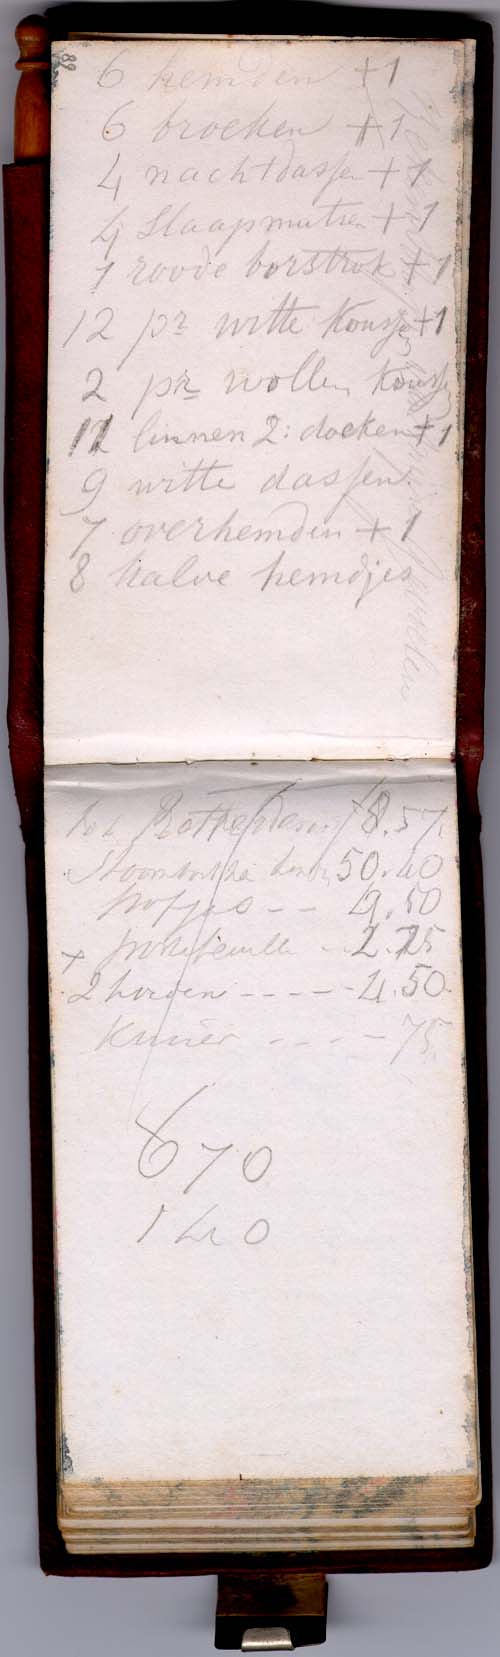 89
6 hemden +1
6 broeken +1
4 nachtdassen +1
4 Slaapmutsen +1
1 roode borstrok +1
12 pr witte Kousen +1
2 pr wollen Kousen
12 linnen Z: doeken +1
9 witte dassen
7 overhemden +1
8 halve hemdjes
Rotterdam 8.57
50.40
potjes -- 9.50
+ portefeuille - 2.25
2 - - - - 4.50
Kruier - - - - 75
670
140